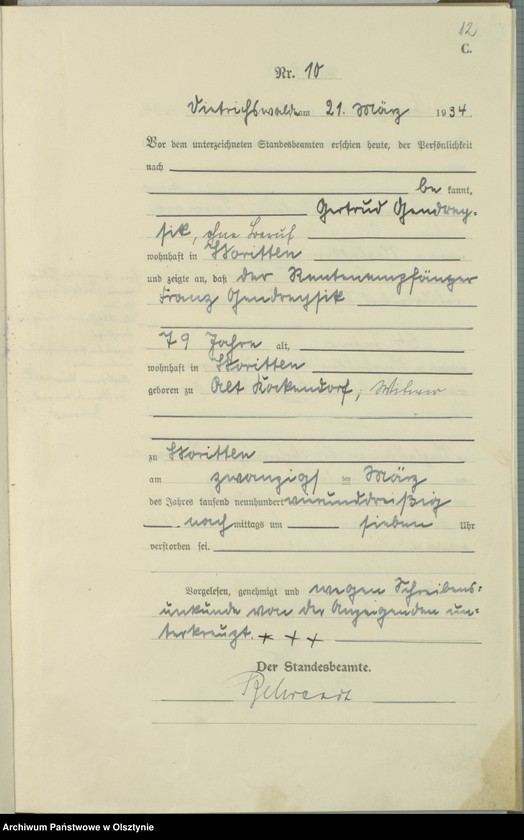 12
C.
Nr. 10
Dietrichswalde am 21. März 1934
Vor dem unterzeichneten Standesbeamten erschien heute, der Persönlichkeit
nach
be kannt,
Gertrud Gendrey-
sik, ohne Beruf
wohnhaft in Woritten
und zeigte an, daß der Rentenempfänger
Franz Gendreysik
79 Jahre alt,
wohnhaft in Woritten
geboren zu Alt Kockendorf, Witwer
zu Woritten
am zwanzigst en März
des Jahres tausend neunhundert vierunddreißig
nach mittags um sieben Uhr
verstorben sei.
Vorgelesen, genehmigt und wegen Schreibens-
unkunde von der Anzeigenden un-
terkreuzt. + + +
Der Standesbeamte.
Archiwum Państwowe w Olsztynie